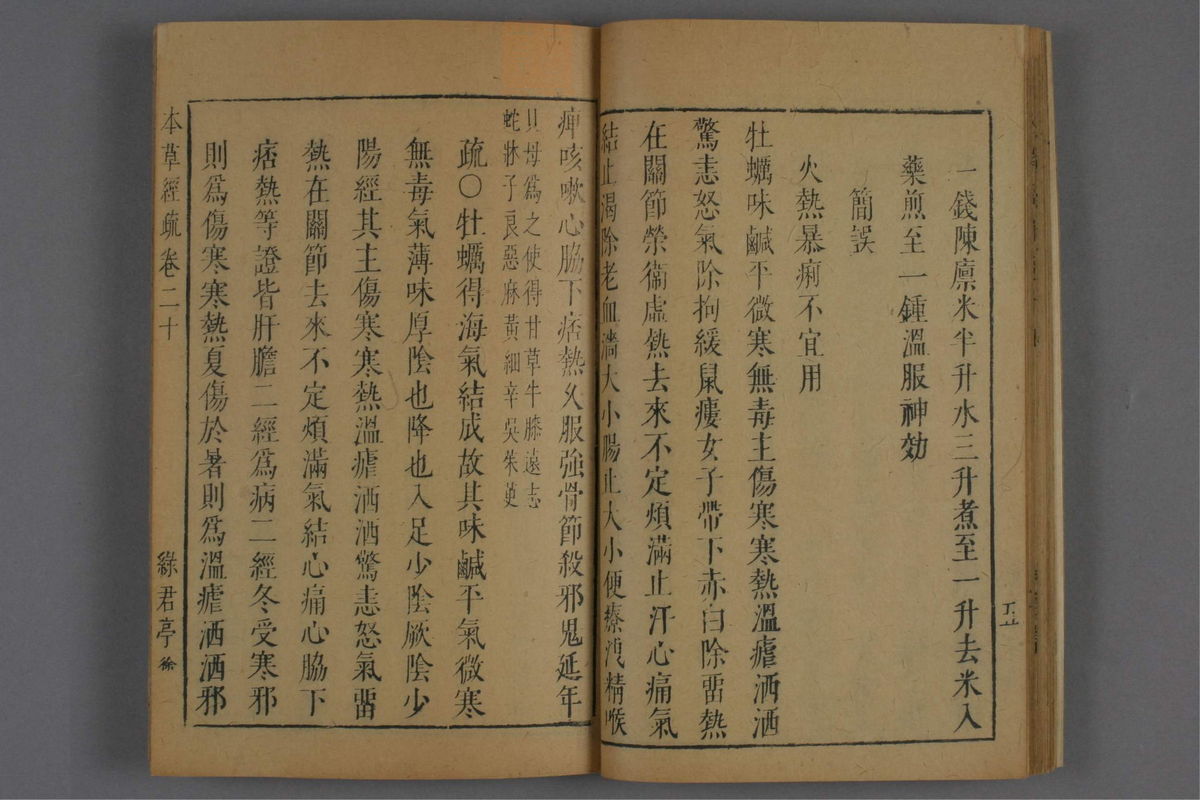 一錢陳廪米半升水三升煮至一升去米入
藥煎至一鍾溫服神効
簡誤
火熱暴痢不宜用
牡蠣味鹹平微寒無毒主傷寒寒熱溫瘧洒洒
驚恚怒氣除拘緩鼠瘻女子帶下赤白除畱熱
在關節榮衞虛熱去來不定煩滿止汗心痛氣
結止渴除老血濇大小腸止大小便療洩精喉
痺咳嗽心脇下痞熱久服強骨節殺邪鬼延年
貝母爲之使得甘草牛膝遠志
蛇牀子良惡麻黃細辛吳茱萸
疏○牡蠣得海氣結成故其味鹹平氣微寒
無毒氣薄味厚陰也降也入足少陰厥陰少
陽經其主傷寒寒熱溫瘧洒洒驚恚怒氣畱
熱在關節去來不定煩滿氣結心痛心脇下
痞熱等證皆肝膽二經爲病二經冬受寒邪
則爲傷寒寒熱夏傷於暑則爲溫瘧洒洒邪
本草經疏 卷二十
綠君亭 徐